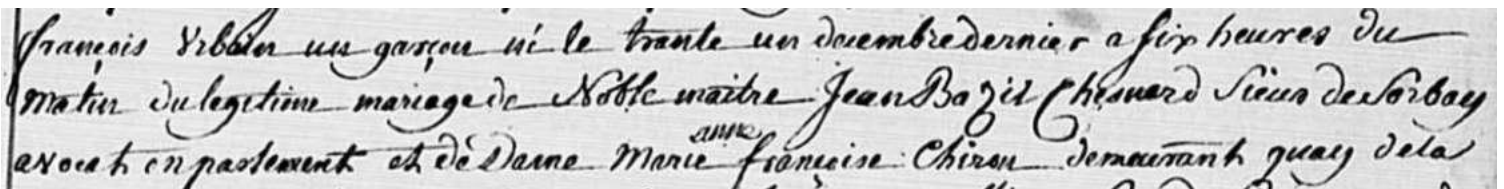 françois Urbain un garçon né le trante un decembre dernier a six heures du
matin du legitime mariage de Noble maitre Jean Bazil Chesnard Sieur de Sorbay
avocat en parlement et de Dame Marie anne françoise Chiron demeurant quay dela